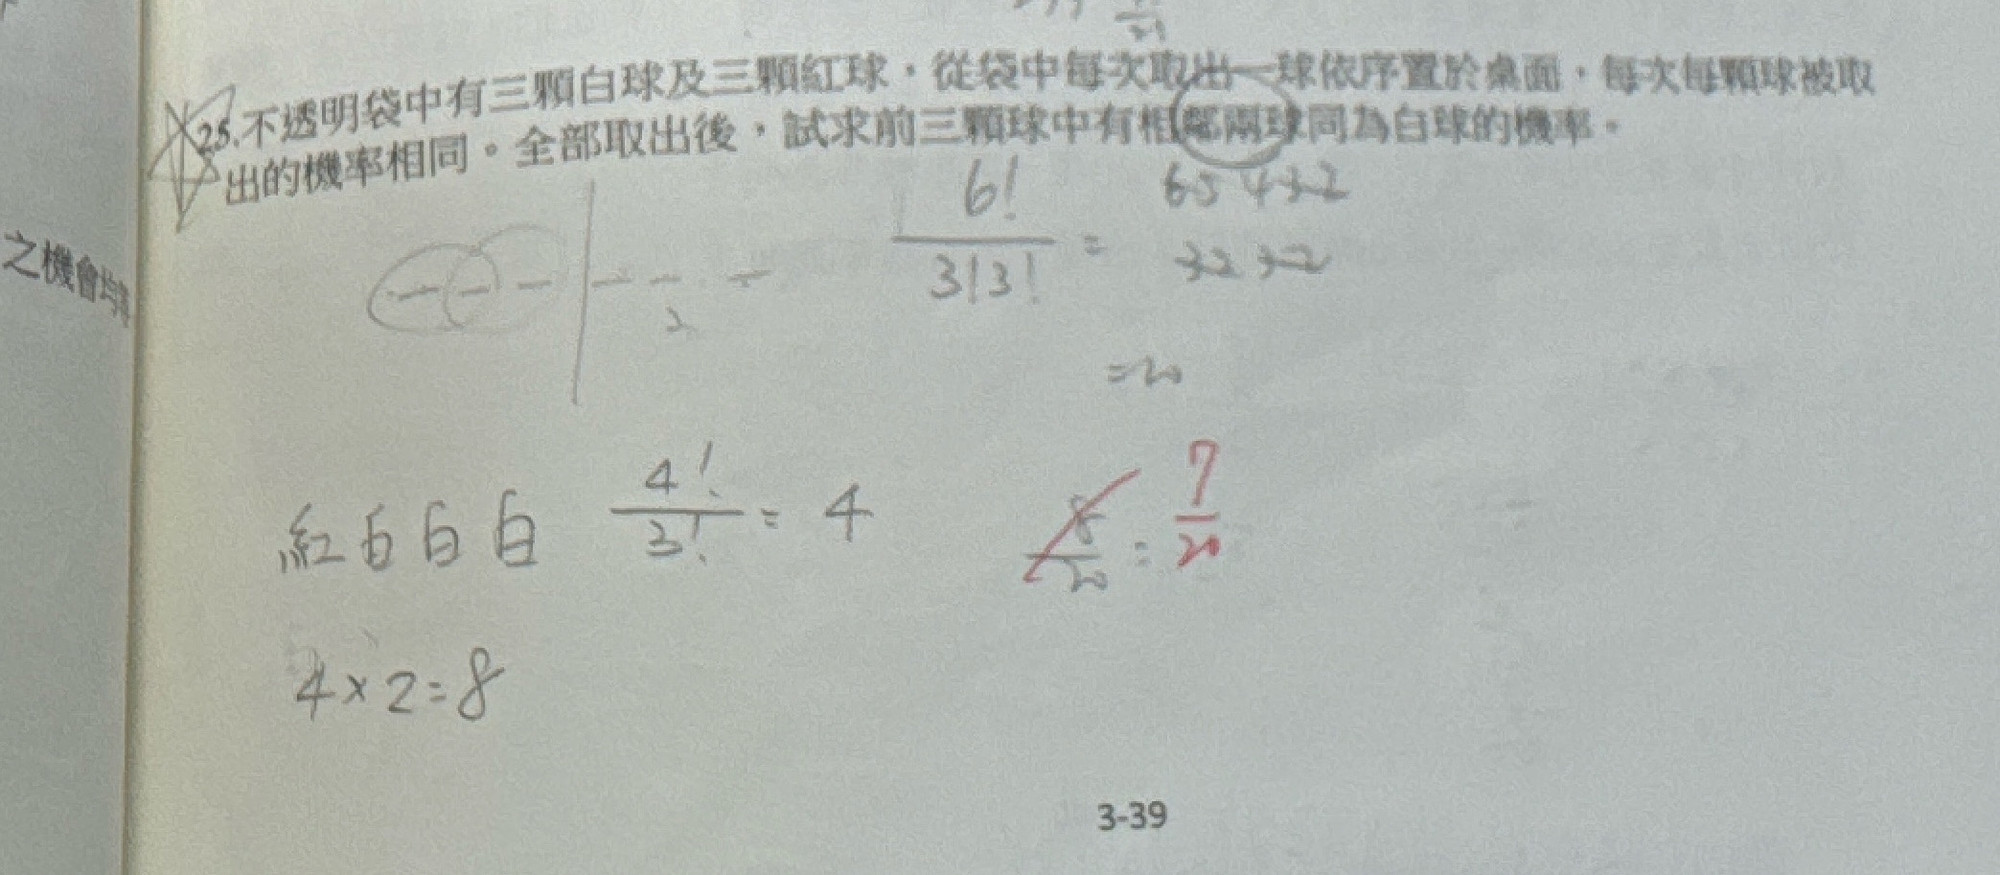 25.不透明袋中有三顆白球及三顆紅球，從袋中每次取出一球依序置於桌面，每次每顆球被取
出的機率相同。全部取出後，試求前三顆球中有相鄰兩球同為白球的機率。
之機會均等
6!
3!3!
=
6 5 4 3 2
3 2 3 2
2
=20
紅白白白
4!
3!
= 4
8
20
=
7
20
4×2=8
3-39